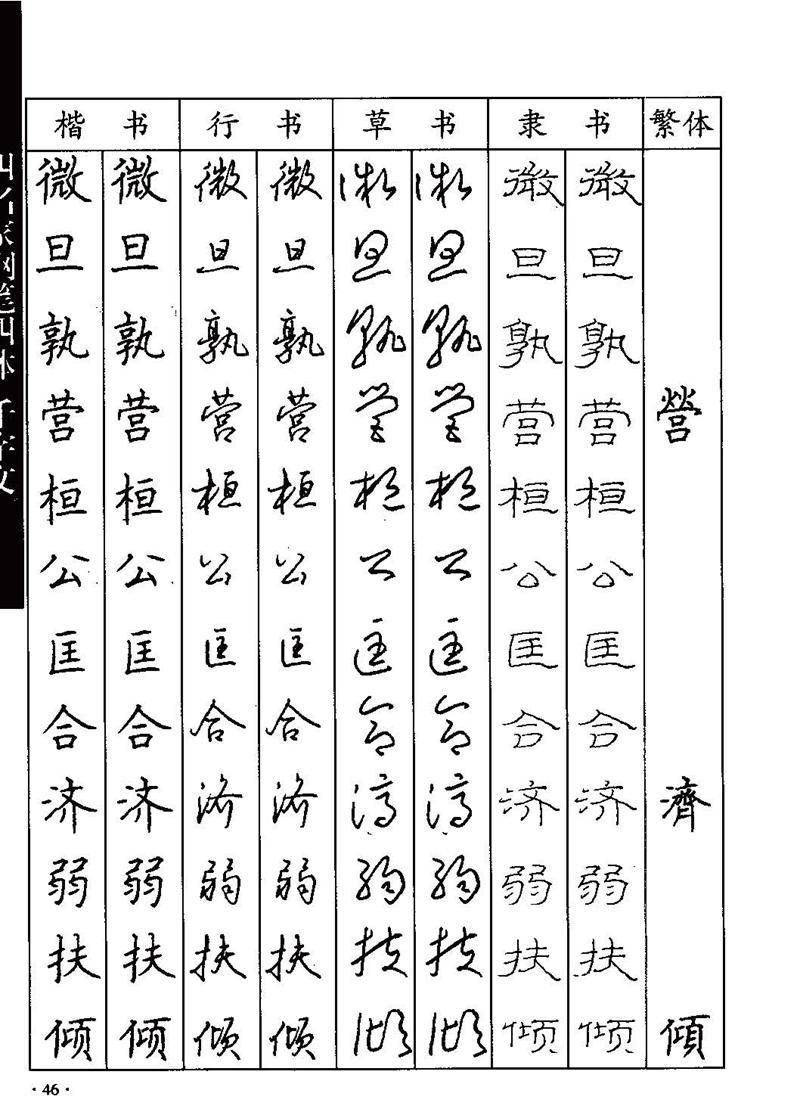 四名家钢笔四体 千字文
楷书 行书 草书 隶书 繁体
微旦孰营桓公匡合济弱扶倾
微旦孰营桓公匡合济弱扶倾
微旦孰营桓公匡合济弱扶倾
微旦孰营桓公匡合济弱扶倾
微旦孰营桓公匡合济弱扶倾
微旦孰营桓公匡合济弱扶倾
微旦孰营桓公匡合济弱扶倾
微旦孰营桓公匡合济弱扶倾
營濟傾
·46·